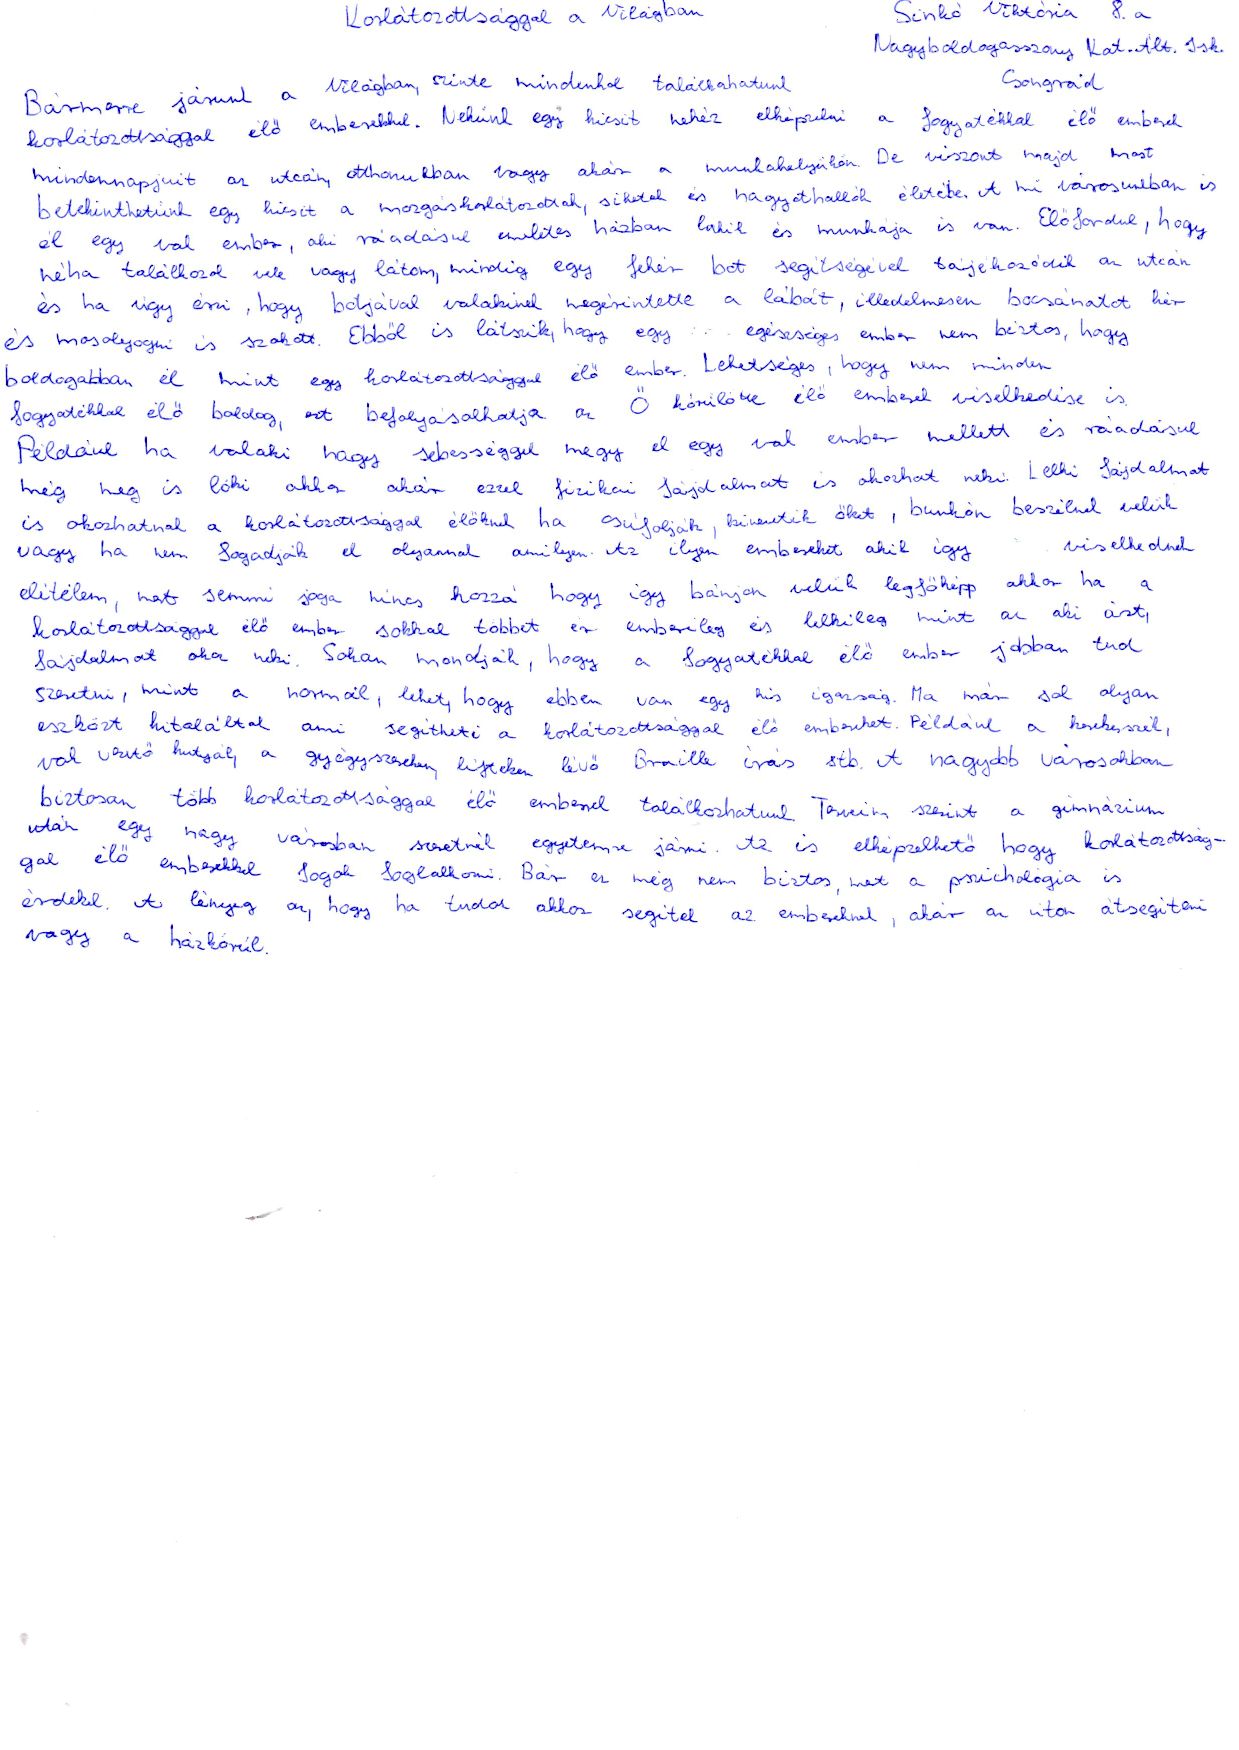 Korlátozottsággal a Világban
Sinkó Viktória 8. a
Nagyboldogasszony Kat. Ált. Isk.
Csongrád
Bármerre járunk a Világban, szinte mindenhol találkozhatunk
korlátozottsággal élő emberekkel. Nekünk egy kicsit nehéz elképzelni a fogyatékkal élő emberek
mindennapjait az utcán, otthonukban vagy akár a munkahelyükön. De viszont majd most
betekinthetünk egy kicsit a mozgáskorlátozottak, siketek és nagyothallók életébe. A mi városunkban is
él egy vak ember, aki ráadásul emeletes házban lakik és munkája is van. Előfordul, hogy
néha találkozok vele vagy látom, mindig egy fehér bot segítségével tájékozódik az utcán
és ha úgy érzi, hogy botjával valakinek megérintette a lábát, illedelmesen bocsánatot kér
és mosolyogni is szokott. Ebből is látszik, hogy egy egészséges ember nem biztos, hogy
boldogabban él mint egy korlátozottsággal élő ember. Lehetséges, hogy nem minden
fogyatékkal élő boldog, ezt befolyásolhatja az Ő körülötte élő emberek viselkedése is.
Például ha valaki nagy sebességgel megy el egy vak ember mellett és ráadásul
még meg is löki akkor akár ezzel fizikai fájdalmat is okozhat neki. Lelki fájdalmat
is okozhatnak a korlátozottsággal élőknek ha csúfolják, kinevetik őket, bunkón beszélnek velük
vagy ha nem fogadják el olyannak amilyen. Az ilyen embereket akik így viselkednek
elítélem, mert semmi joga nincs hozzá hogy így bánjon velük legfőképp akkor ha a
korlátozottsággal élő ember sokkal többet ér emberileg és lelkileg mint az aki ezt,
fájdalmat okoz neki. Sokan mondják, hogy a fogyatékkal élő ember jobban tud
szeretni, mint a normál, lehet, hogy ebben van egy kis igazság. Ma már sok olyan
eszközt kitaláltak ami segítheti a korlátozottsággal élő embereket. Például a kerekesszék,
vak vezető kutyák, a gyógyszereken, lifteken lévő Braille írás stb. A nagyobb városokban
biztosan több korlátozottsággal élő emberrel találkozhatunk. Terveim szerint a gimnázium
után egy nagy városban szeretnék egyetemre járni. Az is elképzelhető hogy korlátozottság-
gal élő emberekkel fogok foglalkozni. Bár ez még nem biztos, mert a pszichológia is
érdekel. A lényeg az, hogy ha tudok akkor segítek az embereknek, akár az úton átsegíteni
vagy a házkörül.